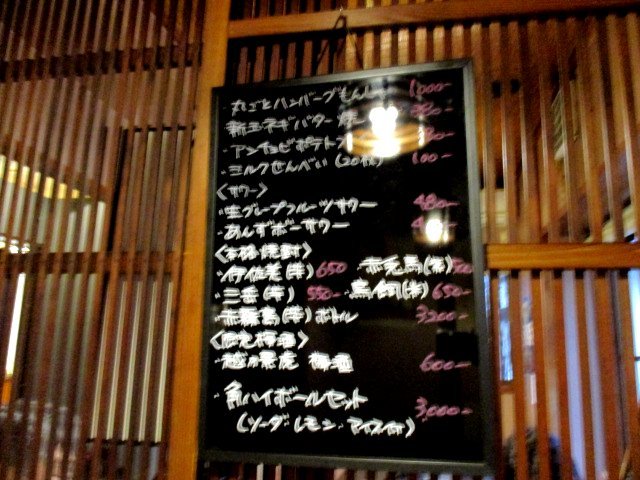 丸ごとハンバーグもんじゃ 1,000-
新玉ネギバター焼
・アンチョビポテト
・ミルクせんべい(20枚) 100-
〈サワー〉
・生グレープフルーツサワー 480-
・あんずボーサワー
〈本格焼酎〉
・伊佐美(芋) 650 ・赤兎馬(芋)
・三岳(芋) 550- ・鳥飼(米) 650-
・赤霧島(芋)ボトル 3,200-
・越乃景虎 梅酒 600-
・角ハイボールセット 3,000-
(ソーダ・レモン・アイス付)